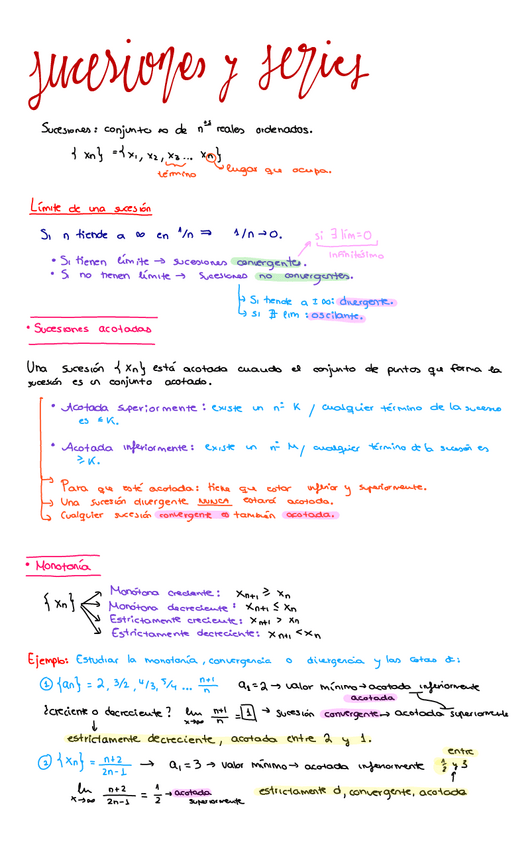 sucesiones y series
Sucesiones: conjunto ∞ de nºs reales ordenados.
{xn} = {x1, x2, x3... xn}
término
lugar que ocupa.
Límite de una sucesión
Si n tiende a ∞ en 1/n ⇒ 1/n → 0.
si ∃ lím = 0
infinitésimo
• Si tienen límite → sucesiones convergentes.
• Si no tienen límite → sucesiones no convergentes.
↳ Si tiende a ± ∞: divergente.
↳ si ∄ lim: oscilante.
• Sucesiones acotadas
Una sucesión {xn} está acotada cuando el conjunto de puntos que forma la
sucesión es un conjunto acotado.
• Acotada superiormente: existe un nº K / cualquier término de la sucesión
es ≤ K.
• Acotada inferiormente: existe un nº M / cualquier término de la sucesión es
≥ K.
→ Para que esté acotada: tiene que estar inferior y superiormente.
→ Una sucesión divergente NUNCA estará acotada.
→ Cualquier sucesión convergente es también acotada.
• Monotonía
{xn}
Monótona creciente: xn+1 ≥ xn
Monótona decreciente: xn+1 ≤ xn
Estrictamente creciente: xn+1 > xn
Estrictamente decreciente: xn+1 < xn
Ejemplo: Estudiar la monotonía, convergencia o divergencia y las cotas de:
① {an} = 2, 3/2, 4/3, 5/4 ... n+1/n a1 = 2 → valor mínimo → acotada inferiormente
acotada
¿creciente o decreciente? lim x→∞ n+1/n = 1 → sucesión convergente → acotada superiormente
estrictamente decreciente, acotada entre 2 y 1.
② {xn} = n+2/2n-1 → a1 = 3 → valor mínimo → acotada inferiormente
entre
1/2 y 3
lim x→∞ n+2/2n-1 = 1/2 → acotada
superiormente
estrictamente d, convergente, acotada